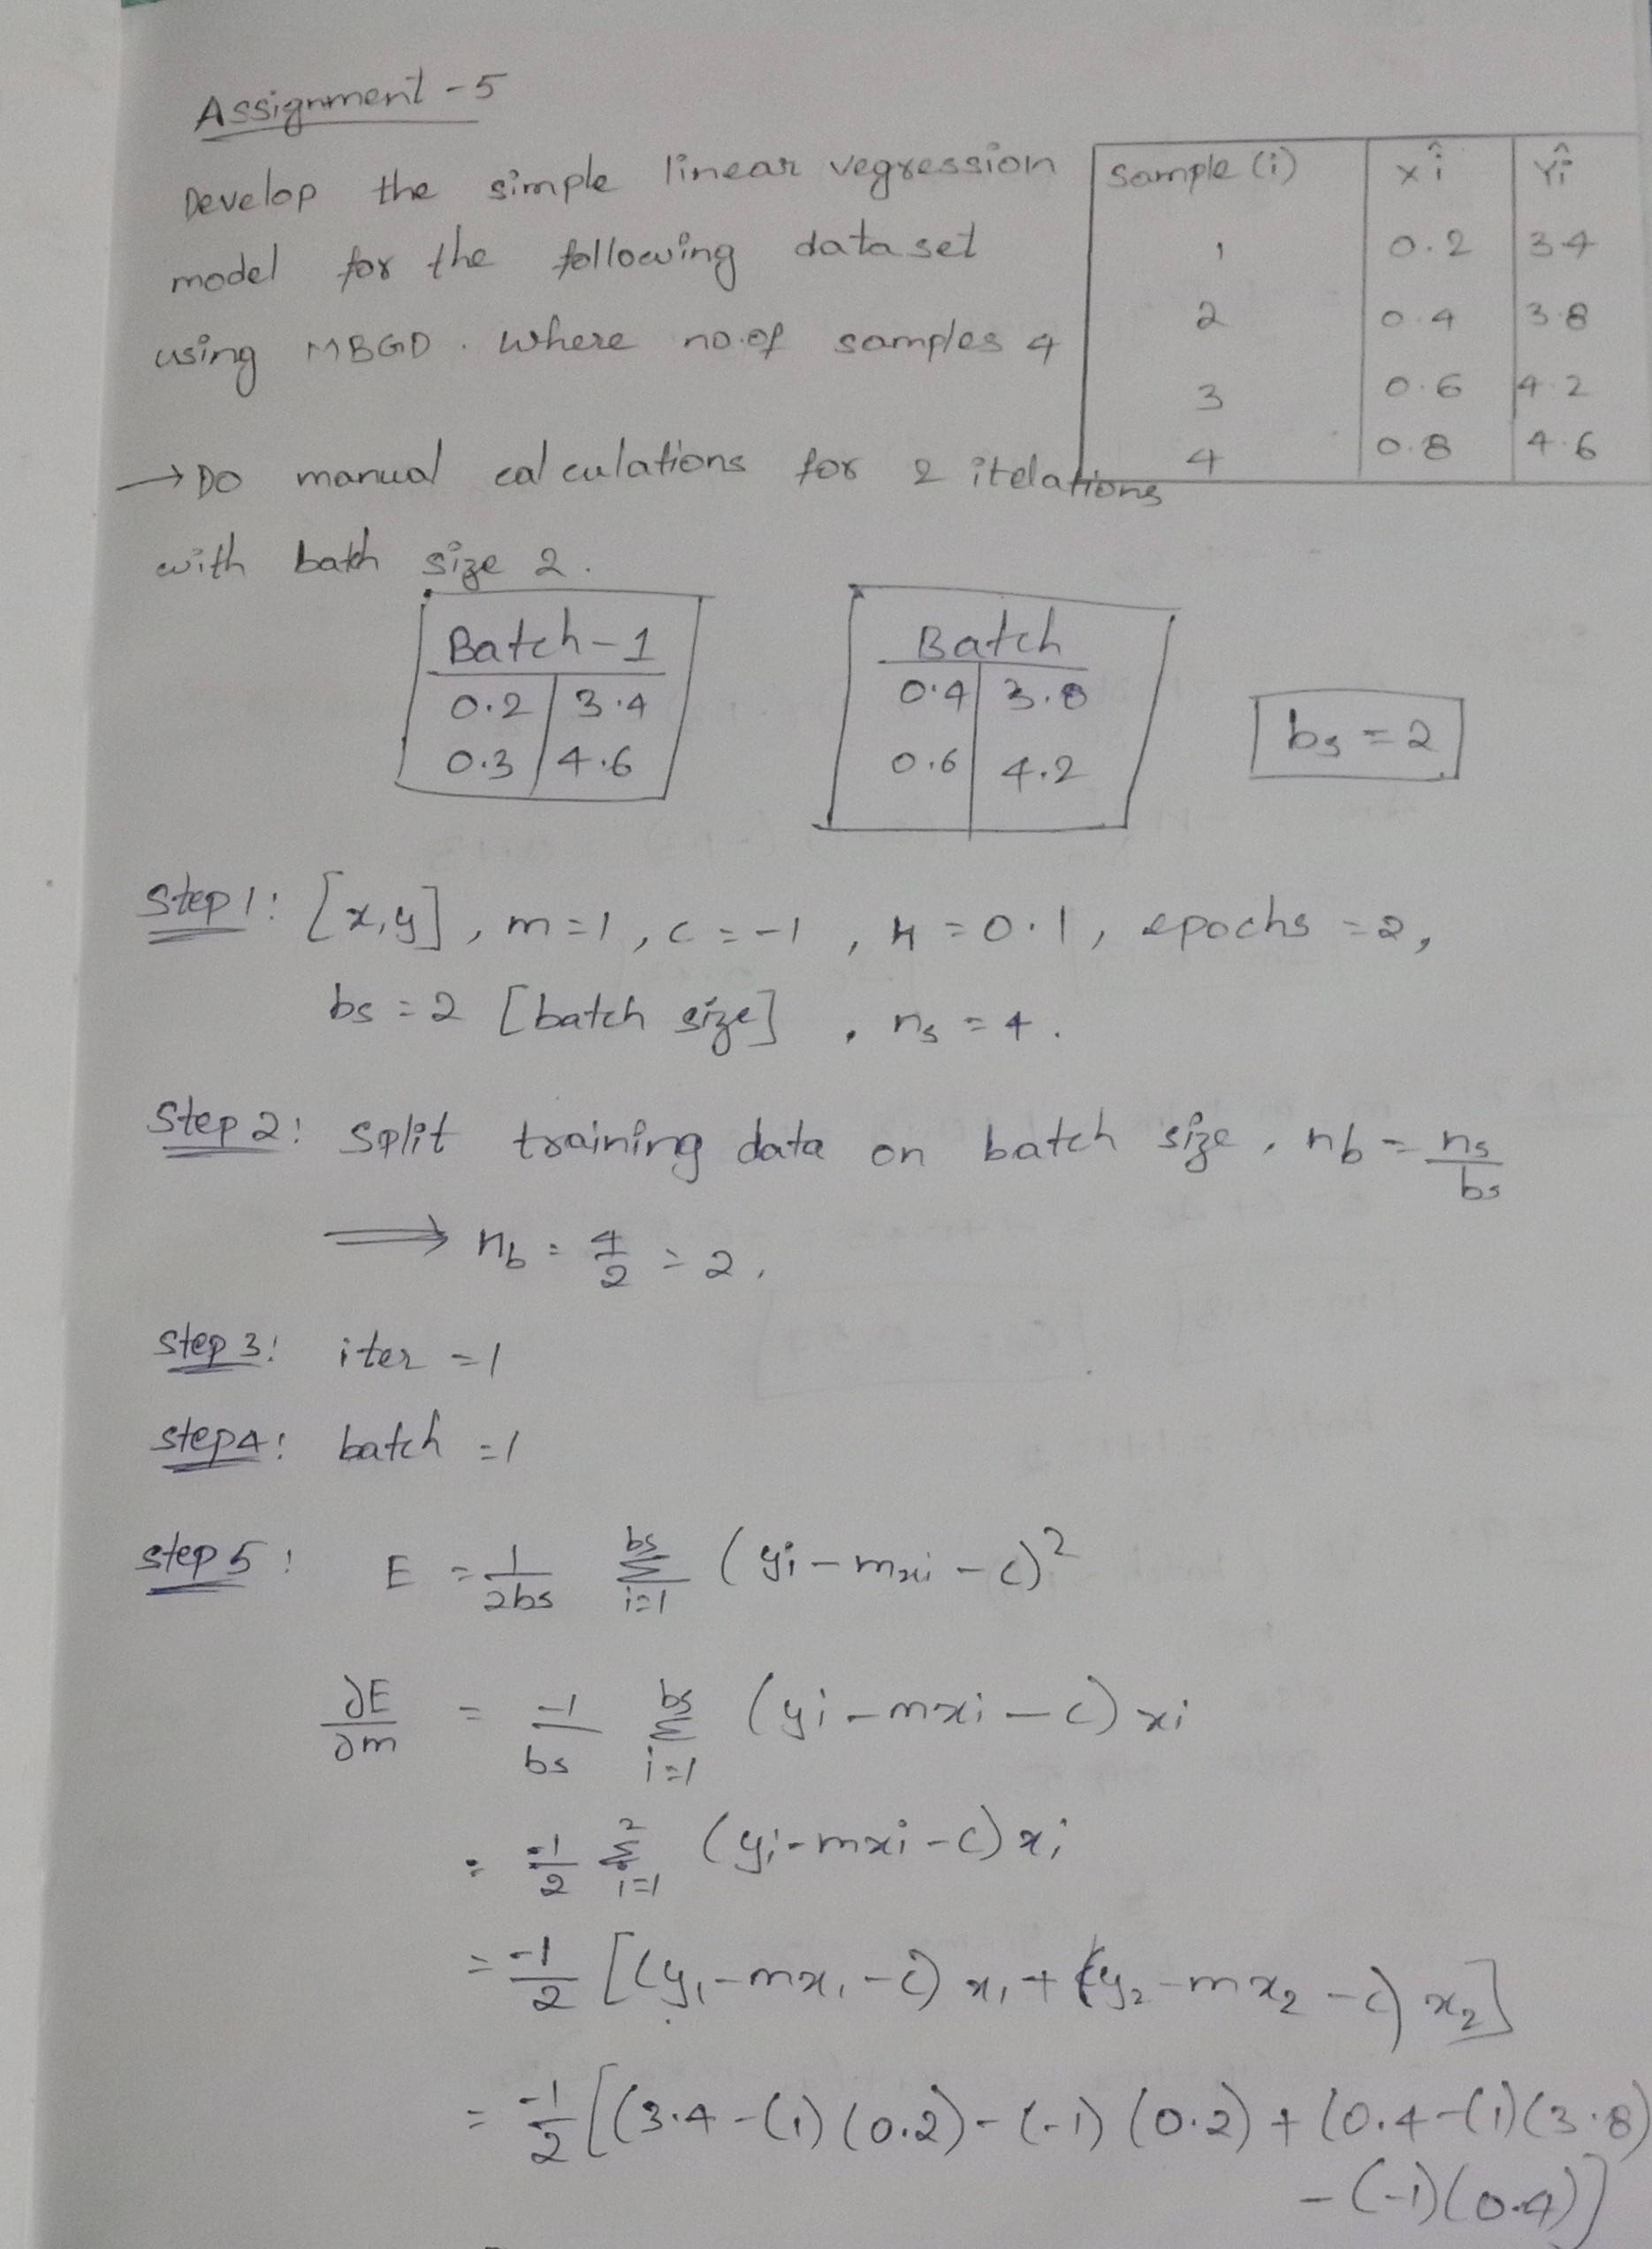 Assignment - 5
Develop the simple linear vegression
model for the following data set
using MBGD. Where no.of samples 4
→ Do manual calculations for 2 itelations
with bath size 2.
Sample (i) | x î | Yî
1 | 0.2 | 3.4
2 | 0.4 | 3.8
3 | 0.6 | 4.2
4 | 0.8 | 4.6
Batch-1
0.2 | 3.4
0.3 | 4.6
Batch
0.4 | 3.8
0.6 | 4.2
bs = 2
Step 1: [x,y], m=1, c=-1, η=0.1, epochs=2,
bs=2 [batch size], ns=4.
Step 2: split training data on batch size, nb = ns/bs
⟹ nb = 4/2 = 2.
Step 3: iter = 1
Step 4: batch = 1
Step 5: E = 1/2bs Σ_{i=1}^{bs} (yi - mxi - c)²
∂E/∂m = -1/bs Σ_{i=1}^{bs} (yi - mxi - c) xi
= -1/2 Σ_{i=1}^{2} (yi - mxi - c) xi
= -1/2 [(y₁ - mx₁ - c) x₁ + (y₂ - mx₂ - c) x₂]
= -1/2 [(3.4 - (1)(0.2) - (-1)(0.2) + (0.4 - (1)(3.8)
- (-1)(0.4)]